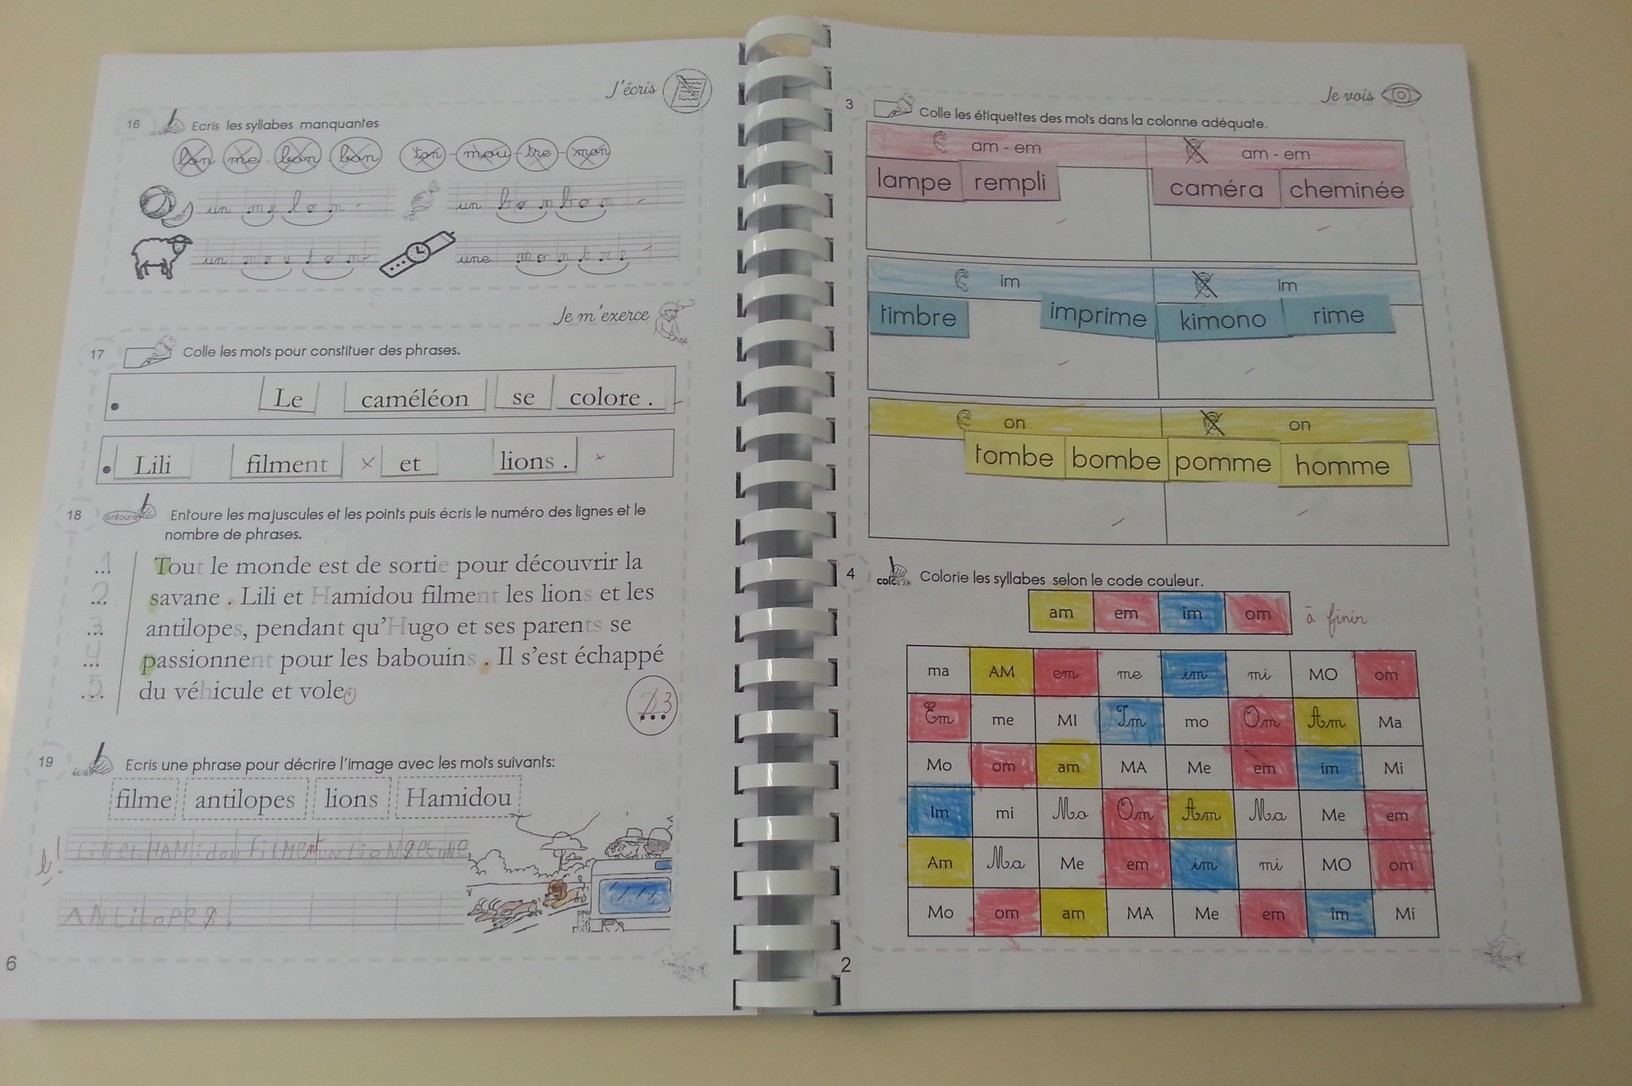 J'écris
16 Ecris les syllabes manquantes
lon me bon ban ton mou tre mon
un melon un bonbon
un mouton une montre
Je m'exerce
17 Colle les mots pour constituer des phrases.
Le caméléon se colore .
Lili filment et lions .
18 entoure Entoure les majuscules et les points puis écris le numéro des lignes et le
nombre de phrases.
1 Tout le monde est de sortie pour découvrir la
2 savane . Lili et Hamidou filment les lions et les
3 antilopes, pendant qu'Hugo et ses parents se
4 passionnent pour les babouins . Il s'est échappé
5 du véhicule et vole.
3
19 Ecris une phrase pour décrire l'image avec les mots suivants:
filme antilopes lions Hamidou
6
Je vois
3 Colle les étiquettes des mots dans la colonne adéquate.
am - em am - em
lampe rempli caméra cheminée
im im
timbre imprime kimono rime
on on
tombe bombe pomme homme
4 Colorie les syllabes selon le code couleur.
am em im om à finir
ma AM em me im mi MO om
Em me MI Im mo Om Am Ma
Mo om am MA Me em im Mi
Im mi Mo Om Am Ma Me em
Am Ma Me em im mi MO om
Mo om am MA Me em im Mi
2